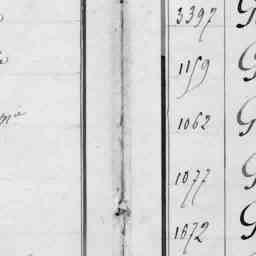 3397 G
1159 G
1062 G
1077 G
1672 G